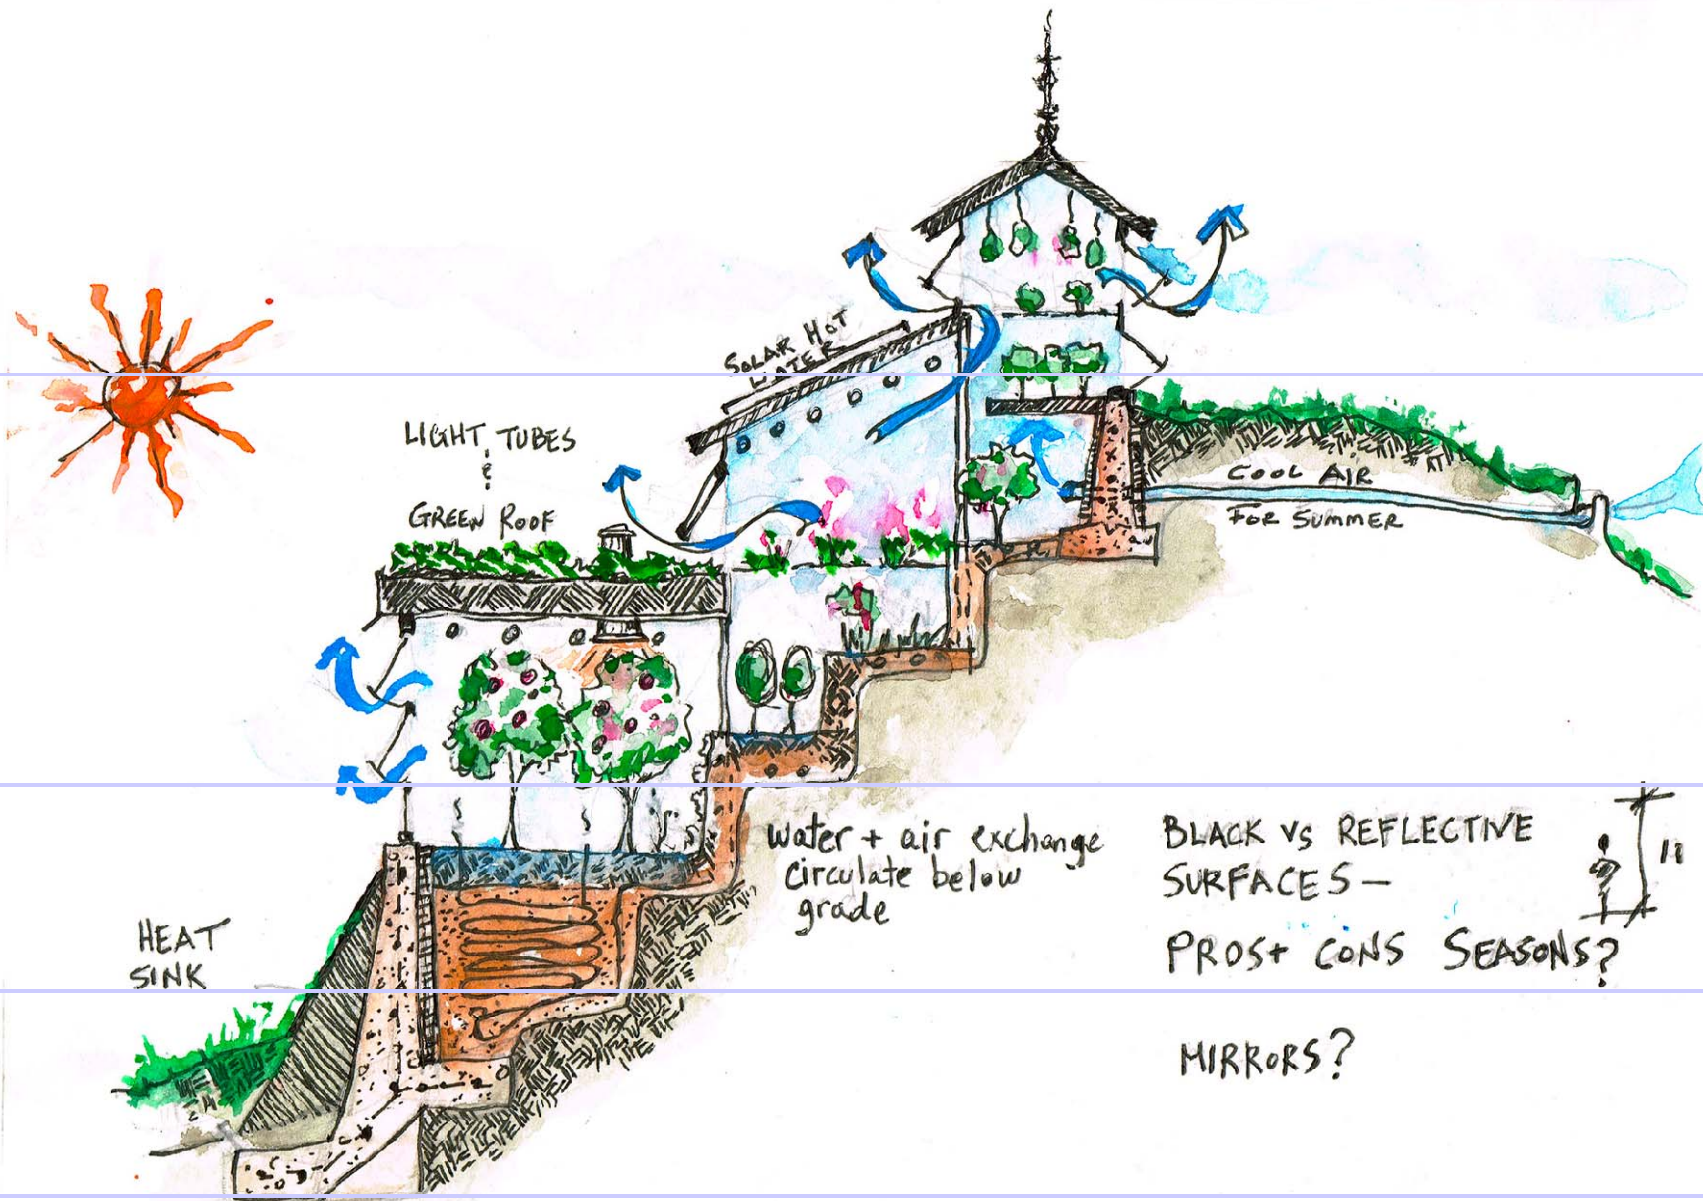 SOLAR HOT
WATER
LIGHT TUBES
&
GREEN ROOF
COOL AIR
FOR SUMMER
water + air exchange
circulate below
grade
BLACK VS REFLECTIVE
SURFACES —
PROS + CONS SEASONS?
MIRRORS?
HEAT
SINK